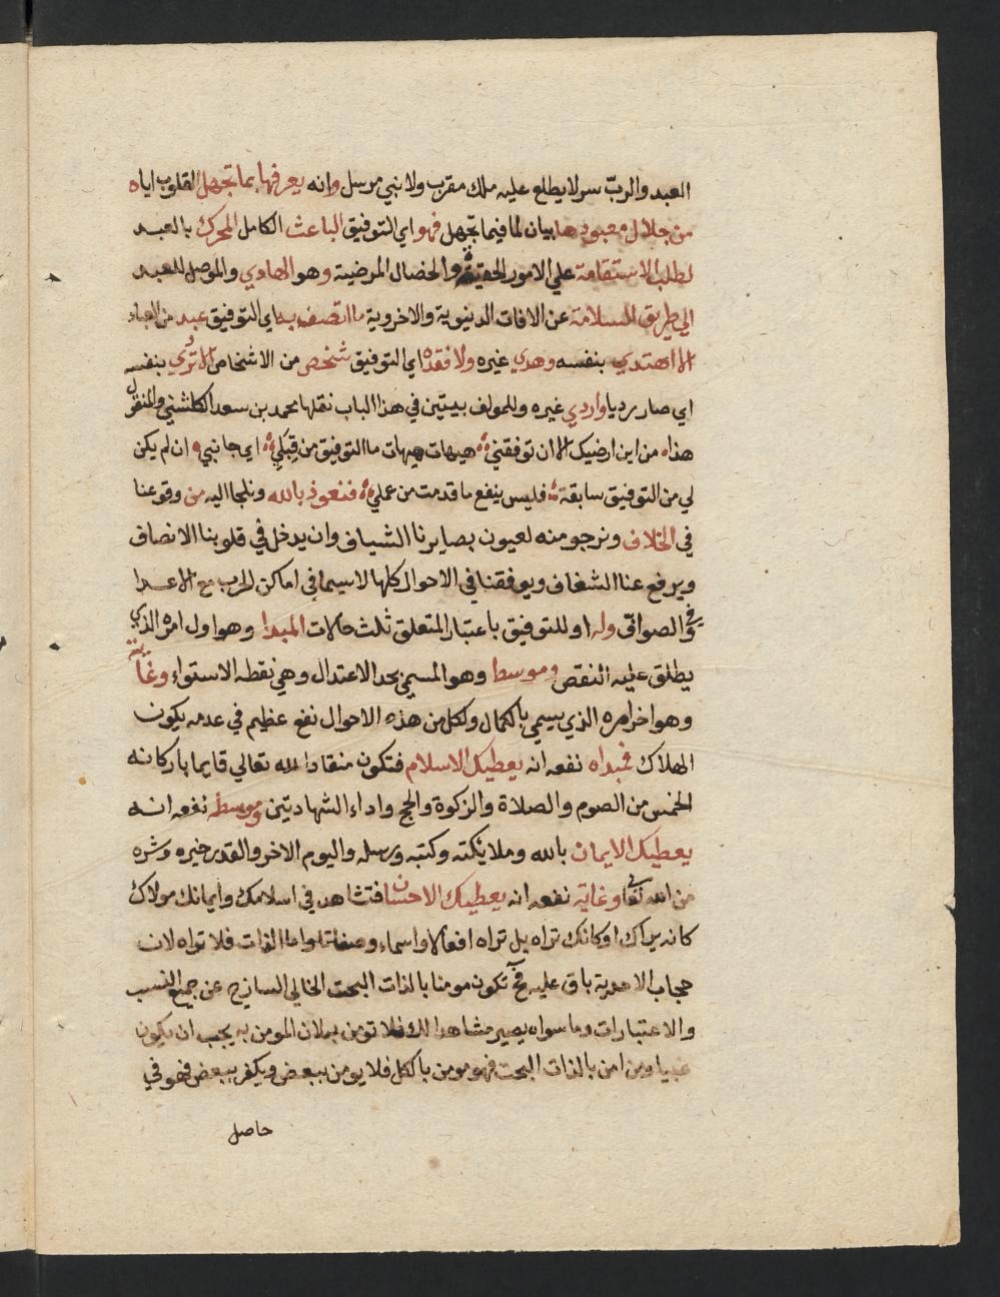 العبد والربّ سر لا يطلع عليه ملك مقرب ولا نبي مرسل وانه يعرفها بما تجهل القلوب اياه
من جلال معبودها بيان لما فيما تجهل فهو اي التوفيق الباعث الكامل المحرك بالعبد
لطلب الاستقامة علي الامور الحقيقية والخصال المرضية وهو الهادي والموصل للعبد
الي طريق السلامة عن الافات الدينوية والاخروية ما اتصف به اي التوفيق عبد من العباد
الا اهتدي بنفسه وهدي غيره ولا فقده اي التوفيق شخص من الاشخاص الا تردي بنفسه
اي صار رديا واردي غيره وللمولف بيتين في هذا الباب نقلها محمد بن سعد الكلشني والمنقول
هذاه من اين ارضيك الا ان توفقني هيهات هيهات ما التوفيق من قِبَلي اي جانبي ان لم يكن
لي من التوفيق سابقة فليس ينفع ما قدمت من عملي فنعوذ بالله ونلجا اليه من وقوعنا
في الخلاف ونرجو منه لعيون بصايرنا الشياف وان يدخل في قلوبنا الانصاف
ويرفع عنا الشغاف ويوفقنا في الاحوال كلها لاسيما في اماكن الحرب مع الاعدا
والصوافي وله او للتوفيق باعتبار المتعلق ثلث حالات المبدا وهو اول امره الذي
يطلق عليه النقص وموسط وهو المسمي بحد الاعتدال وهي نقطه الاستواء وغاية
وهو اخر امره الذي يسمي بالكمال ولكل من هذه الاحوال نفع عظيم في عدمه يكون
الهلاك فمبداه نفعه انه يعطيك الاسلام فتكون منقادا لله تعالي قايما باركانه
الخمس من الصوم والصلاة والزكوة والحج واداء الشهادتين وموسطه نفعه انه
يعطيك الايمان بالله وملائكته وكتبه ورسله واليوم الاخر والقدر خيره وشره
من الله تعا وغايته نفعه انه يعطيك الاحسان فتشاهد في اسلامك وايمانك مولاك
كانه يراك او كانك تراه بل تراه افعالا واسماء وصفاتا واما الذات فلا تراه لان
حجاب الاحدية باق عليه فح تكون مومنا بالذات البحت الخالي الساذج عن جميع النسب
والاعتبارات وما سواه يصير مشاهدا لك فلا تومن به لان المومن به يجب ان يكون
غيبا ومن امن بالذات البحت فهو مومن بالكل فلا يومن ببعض ويكفر ببعض فهو في
حاصل